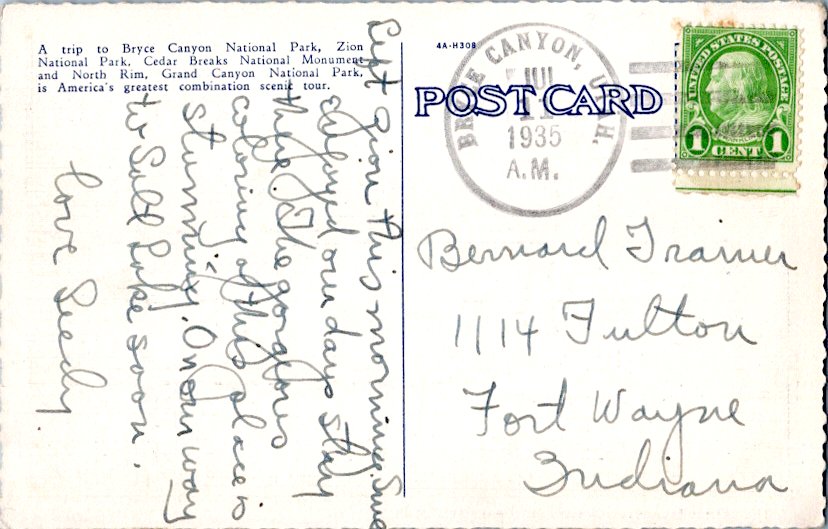 A trip to Bryce Canyon National Park, Zion
National Park, Cedar Breaks National Monument
and North Rim, Grand Canyon National Park,
is America's greatest combination scenic tour.
Left Zion this morning. Sure
enjoyed our days stay
there. The gorgious
coloring of this place is
stunning. On our way
to Salt Lake soon.
Love Seedy.
4A-H308
POST CARD
BRYCE CANYON, UTAH.
JUL
11
1935
A.M.
UNITED STATES POSTAGE
1 CENT 1
Bernard Tramer
1114 Fulton
Fort Wayne
Indiana